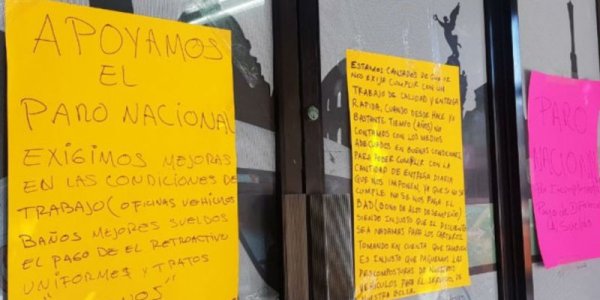 APOYAMOS
EL
PARO NACIONAL
EXIGIMOS MEJORAS
EN LAS CONDICIONES DE
TRABAJO (OFICINAS VEHÍCULOS
BAÑOS MEJORES SUELDOS
EL PAGO DE EL RETROACTIVO
UNIFORMES Y TRATOS
ESTAMOS CANSADOS DE QUE SE
NOS EXIJA CUMPLIR CON UN
TRABAJO DE CALIDAD Y ENTREGA
RAPIDA, CUANDO DESDE HACE YA
BASTANTE TIEMPO (AÑOS) NO
CONTAMOS CON LOS MEDIOS
ADECUADOS EN BUENAS CONDICIONES
PARA PODER CUMPLIR CON LA
CANTIDAD DE ENTREGA DIARIA
QUE NOS IMPONEN, YA QUE SI NO SE
CUMPLE NO SE NOS PAGA EL
BAD (BONO DE ALTO DESEMPEÑO)
SIENDO INJUSTO QUE EL DESCUENTO
SEA NADAMAS PARA LOS CARTEROS
TOMANDO EN CUENTA QUE TAMBIEN
ES INJUSTO QUE PAGUEMOS LAS
DESCOMPOSTURAS DE NUESTROS
VEHICULOS PARA EL SERVICIO DE
NUESTRA BOLSA.
PARO
NACIONAL
Pago de
la Sueldos